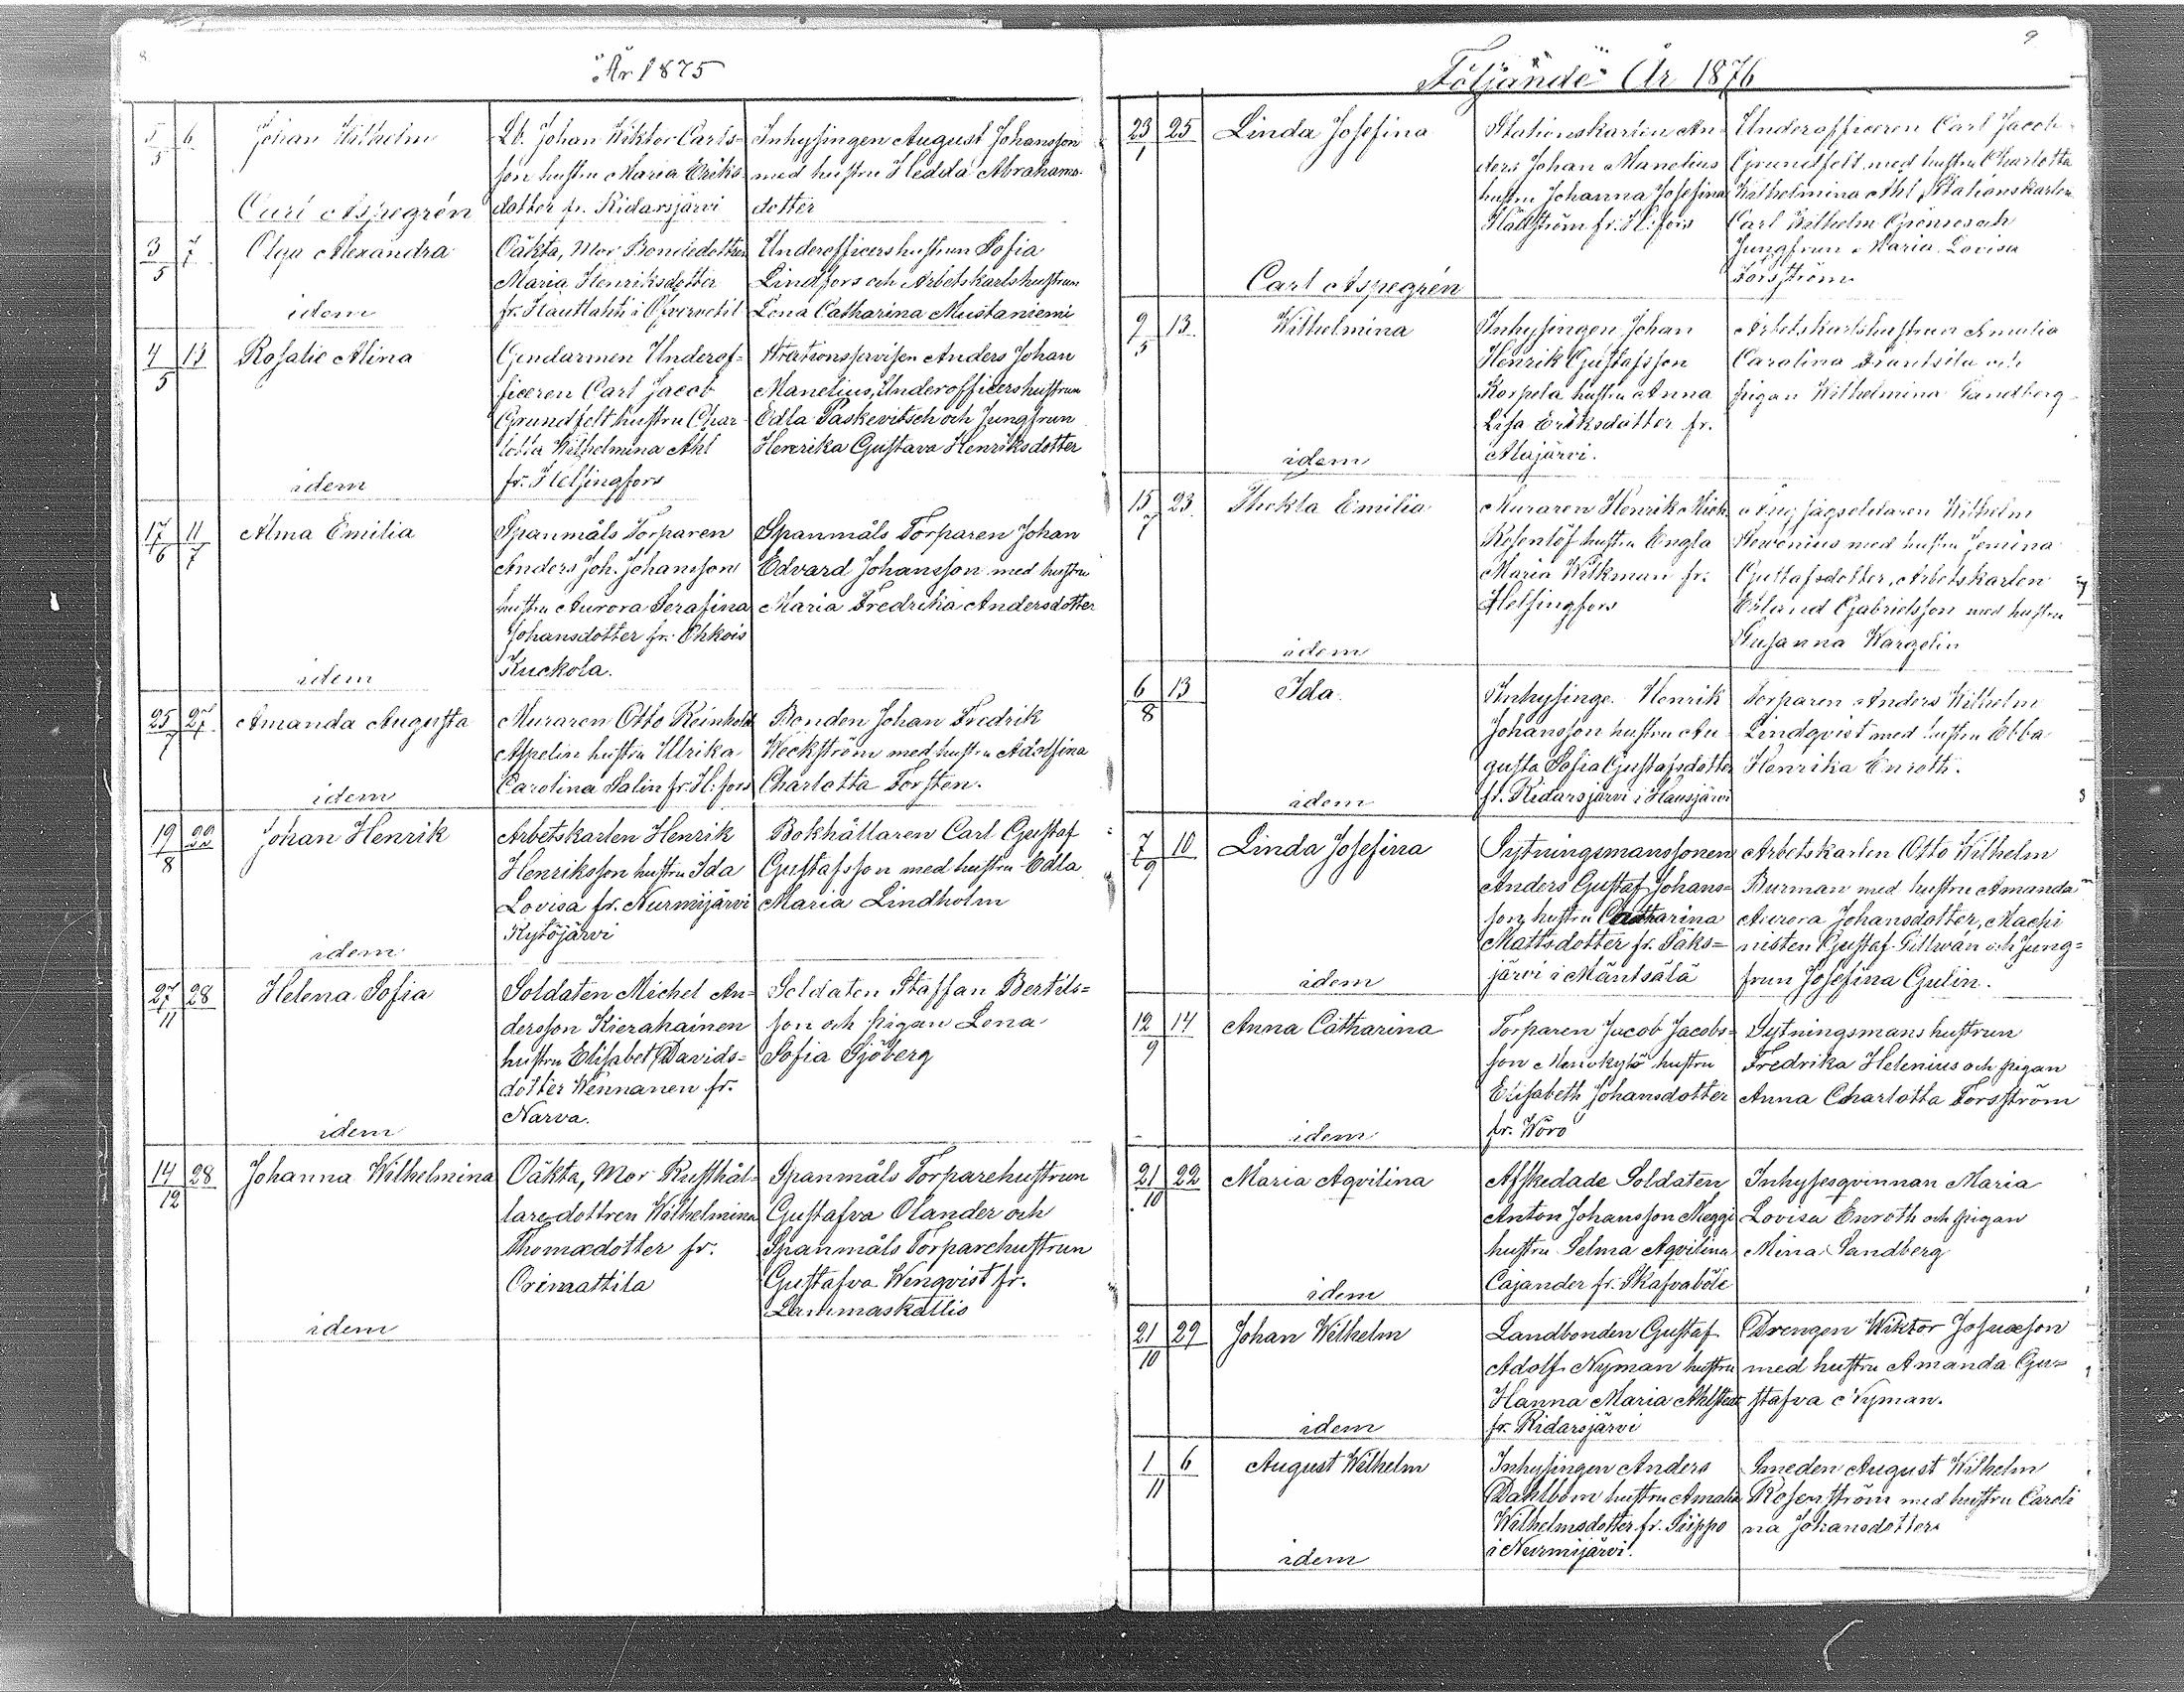 8
År 1875
5/5 6 Johan Wilhelm
Lb. Johan Wiktor Carls=
son hustru Maria Eriks
dotter fr. Ridarsjärvi
Inhysingen August Johansson
med hustru Hedda Abrahams
dotter
Carl Aspegrén
3/5 7 Olga Alexandra
Oäkta, Mor Bondedottren
Maria Henriksdotter
fr.
Underofficershustrun Sofia
Lindfors och Arbetskarlshustrun
Lena Catharina Mustaniemi
idem
4/5 13 Rosalie Alina
Gendarmen Underof=
ficeren Carl Jacob
Grundfelt hustru Char
lotta Wilhelmina Ahl
fr. Helsingfors
Stationsservisen Anders Johan
Manelius, Underofficershustrun
Edla Paskevitsch och Jungfrun
Henrika Gustava Henriksdotter
idem
17/6 11/7 Alma Emilia
Spanmåls Torparen
Anders Joh. Johansson
hustru Aurora Serafina
Johansdotter fr. Ohkois
Kuckola.
Spanmåls Torparen Johan
Edvard Johansson med hustru
Maria Fredrika Andersdotter
idem
25/7 27 Amanda Augusta
Muraren Otto Reinhold
Aspelin hustru Ulrika
Carolina Salin fr. H:fors
Bonden Johan Fredrik
Weckström med hustru Adolfina
Charlotta Forsten.
idem
19/8 22 Johan Henrik
Arbetskarlen Henrik
Henriksson hustru Ida
Lovisa fr. Nurmijärvi
Kytöjärvi
Bokhållaren Carl Gustaf
Gustafsson med hustru Edla
Maria Lindholm
idem
27/11 28 Helena Sofia
Soldaten Michel An=
dersson Kierahainen
hustru Elisabet Davids=
dotter Wennanen fr.
Narva.
Soldaten Staffan Bertils=
son och pigan Lena
Sofia Sjöberg
idem
14/12 28 Johanna Wilhelmina
Oäkta, Mor Rusthål=
laredottren Wilhelmina
Thomædotter fr.
Orimattila
Spanmåls Torparehustrun
Gustafva Olander och
Spanmåls Torparehustrun
Gustafva Wenqvist fr.
Lammaskallio
idem
9
Följande År 1876
23/1 25 Linda Josefina
Stationskarlen An
ders Johan Manelius
hustru Johanna Josefina
Hällström fr. H:fors
Underofficeren Carl Jacob
Grundfelt med hustru Charlotta
Wilhelmina Ahl, Stationskarlen
Carl Wilhelm Grönroos och
Jungfrun Maria Lovisa
Forsström
Carl Aspegrén
9/5 13 Wilhelmina
Inhysingen Johan
Henrik Gustafsson
Korpela hustru Anna
Lisa Eriksdotter fr.
Alajärvi.
Arbetskarlshustrun Amalia
Carolina Frantsila och
pigan Wilhelmina Sandberg
idem
15/7 23 Thekla Emilia
Muraren Henrik Mich
Rosenlöf hustru Engla
Maria Wilkman fr.
Helsingfors
Wilhelm
med hustru Jemina
Gustafsdotter, Arbetskarlen
Erland Gabrielsson med hustru
Susanna Wargelin
idem
6/8 13 Ida
Inhysinge. Henrik
Johansson hustru Au
gusta Sofia Gustafsdotter
fr. Ridarsjärvi i Hausjärvi
Torparen Anders Wilhelm
Lindqvist med hustru Ebba
Henrika Enroth.
idem
7/9 10 Linda Josefina
Sytningsmanssonen
Anders Gustaf Johans=
son hustru Catharina
Mattsdotter fr. Säks=
järvi i Mäntsälä
Arbetskarlen Otto Wilhelm
Burman med hustru Amanda
Aurora Johansdotter, Machi
nisten Gustaf Tillman och Jung=
frun Josefina Gulin.
idem
12/9 14 Anna Catharina
Torparen Jacob Jacobs=
son hustru
Elisabeth Johansdotter
fr. Wörö
Sytningsmanshustrun
Fredrika Helenius och pigan
Anna Charlotta Forsström
idem
21/10 22 Maria Aqvilina
Afskedade Soldaten
Anton Johansson Meggi
hustru Selma Aqvilina
Cajander fr. Skafvaböle
Inhysesqvinnan Maria
Lovisa Enroth och pigan
Mina Sandberg
idem
21/10 29 Johan Wilhelm
Landbonden Gustaf
Adolf Nyman hustru
Hanna Maria Ahlstedt
fr. Ridarsjärvi
Drengen Wiktor Josuæson
med hustru Amanda Gu=
stafva Nyman.
idem
1/11 6 August Wilhelm
Inhysingen Anders
Dahlbom hustru Amalia
Wilhelmsdotter fr. Siippo
i Nurmijärvi.
Smeden August Wilhelm
Rosenström med hustru Caroli
na Johansdotter
idem